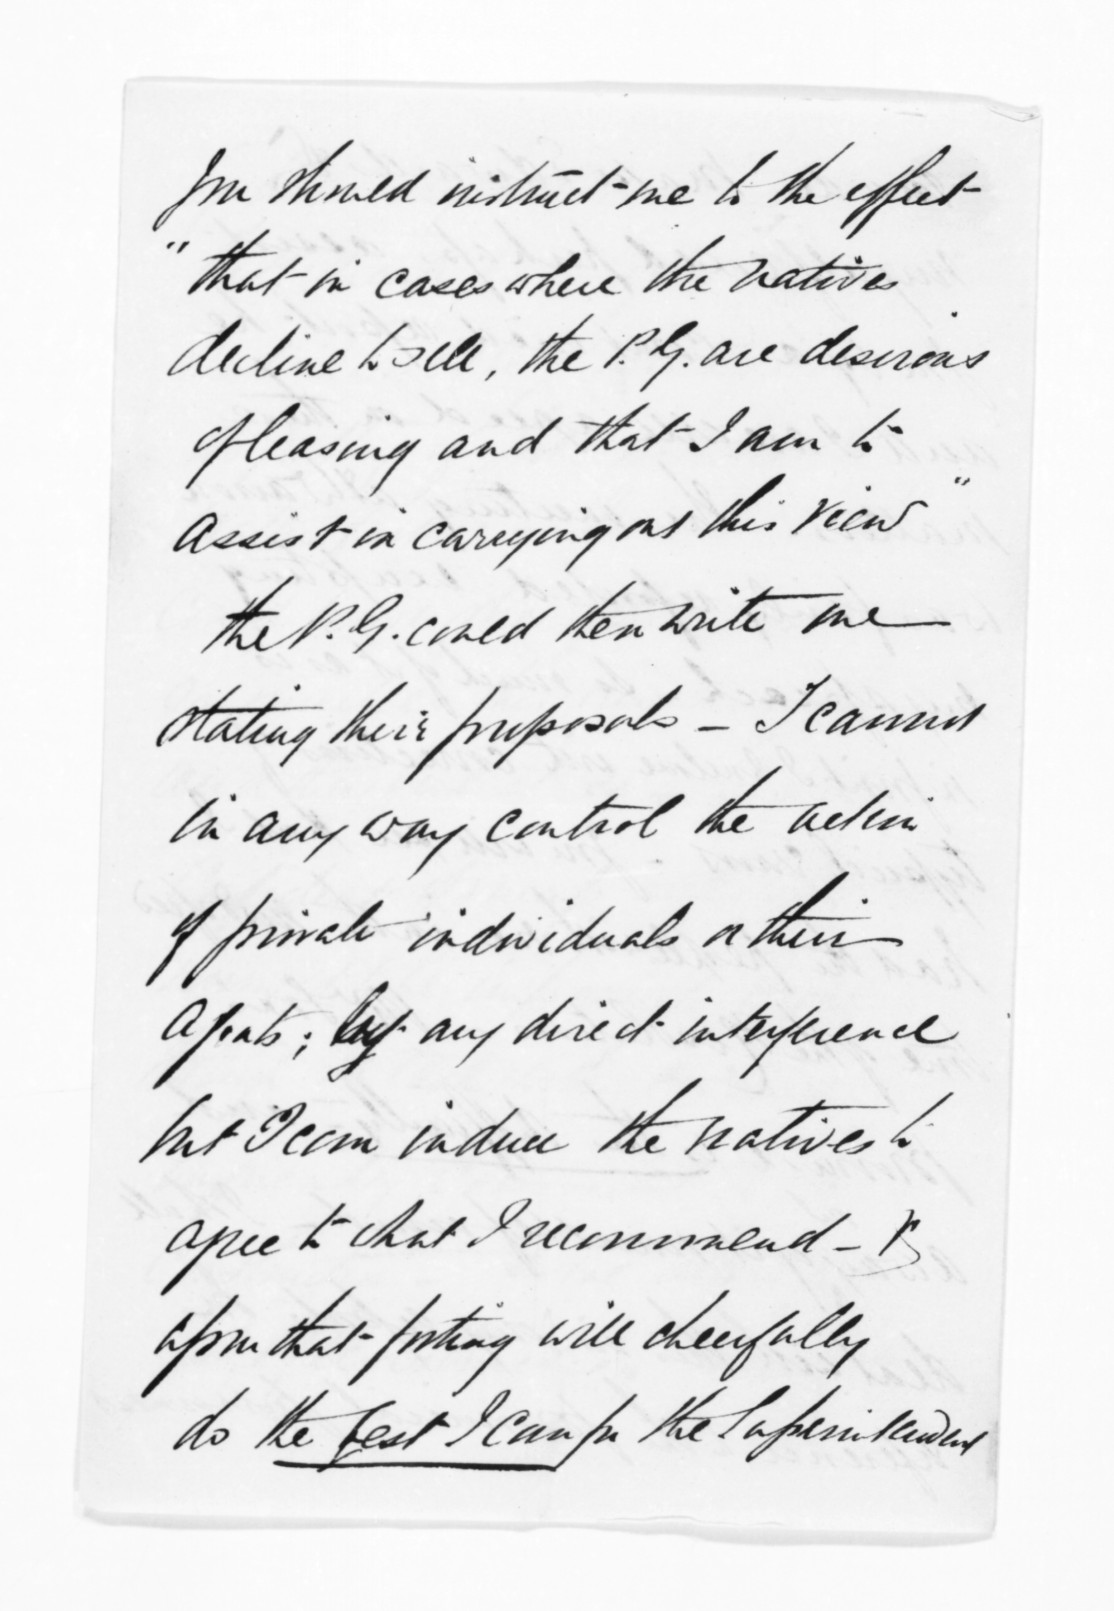 you should instruct me to the effect
"that in cases where the natives
decline to sell, the P. G. are desirous
of leasing and that I am to
assist in carrying out this view"
the P. G. could then write me
stating their proposals – I cannot
in any way control the action
of private individuals or their
agents; by any direct interference
but I can induce the natives to
agree to what I recommend – &
upon that footing will cheerfully
do the best I can for the Superintendent